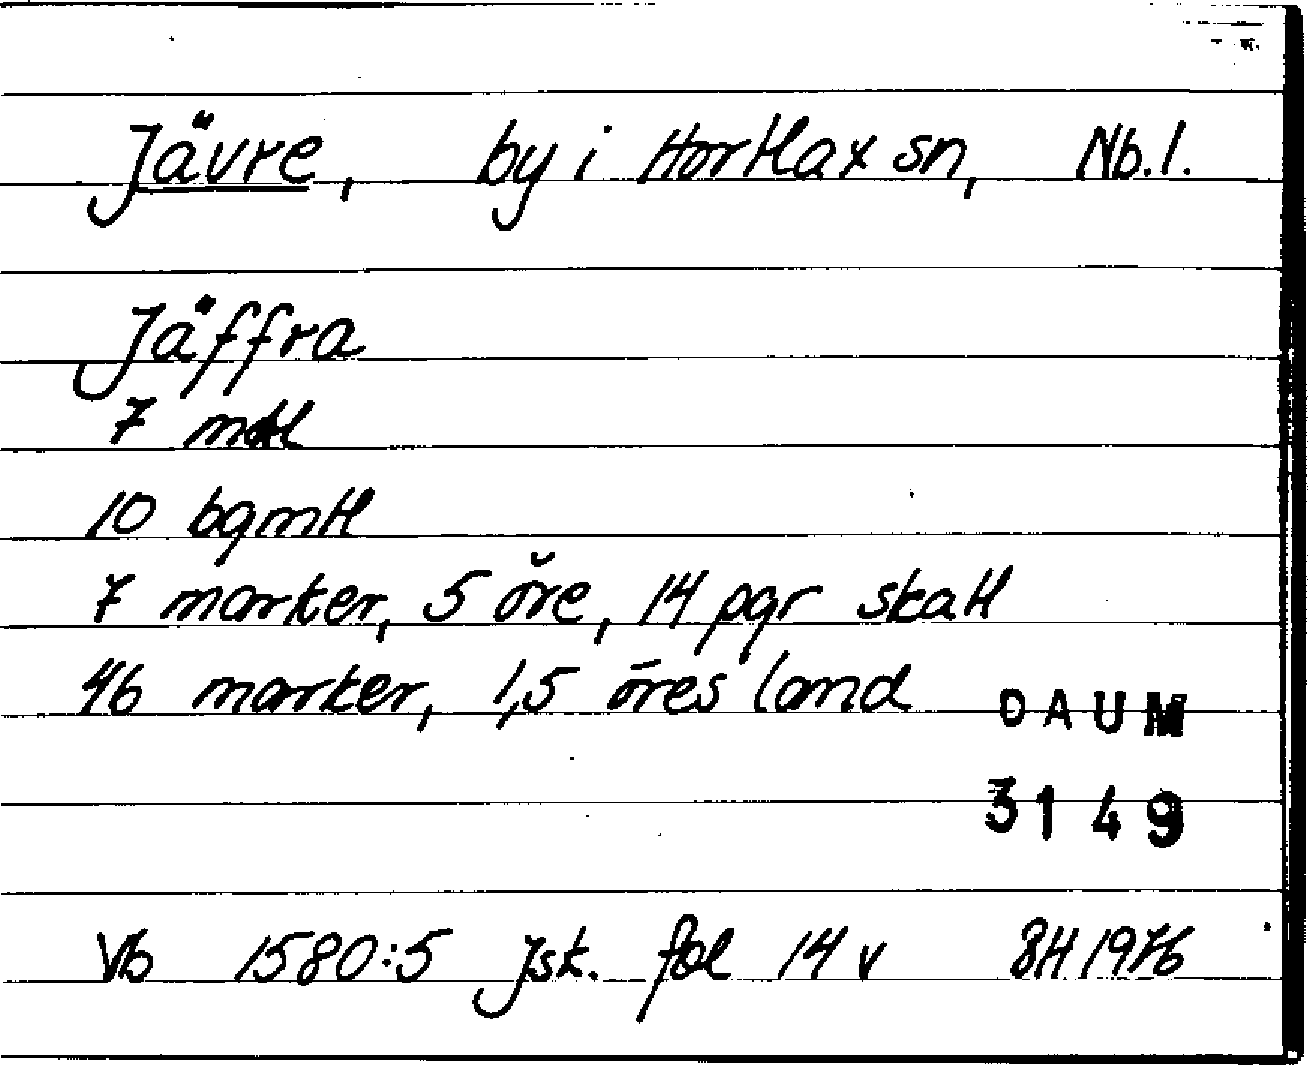 Jävre, by i Hortlax sn, Nb.l.
Jäffra
7 mtl
10 bgmtl
7 marker, 5 öre, 14 pgr skatt
46 marker, 1,5 öres land
DAUM
3149
Vb 1580:5 Jsk. fol 14 v BH 1976